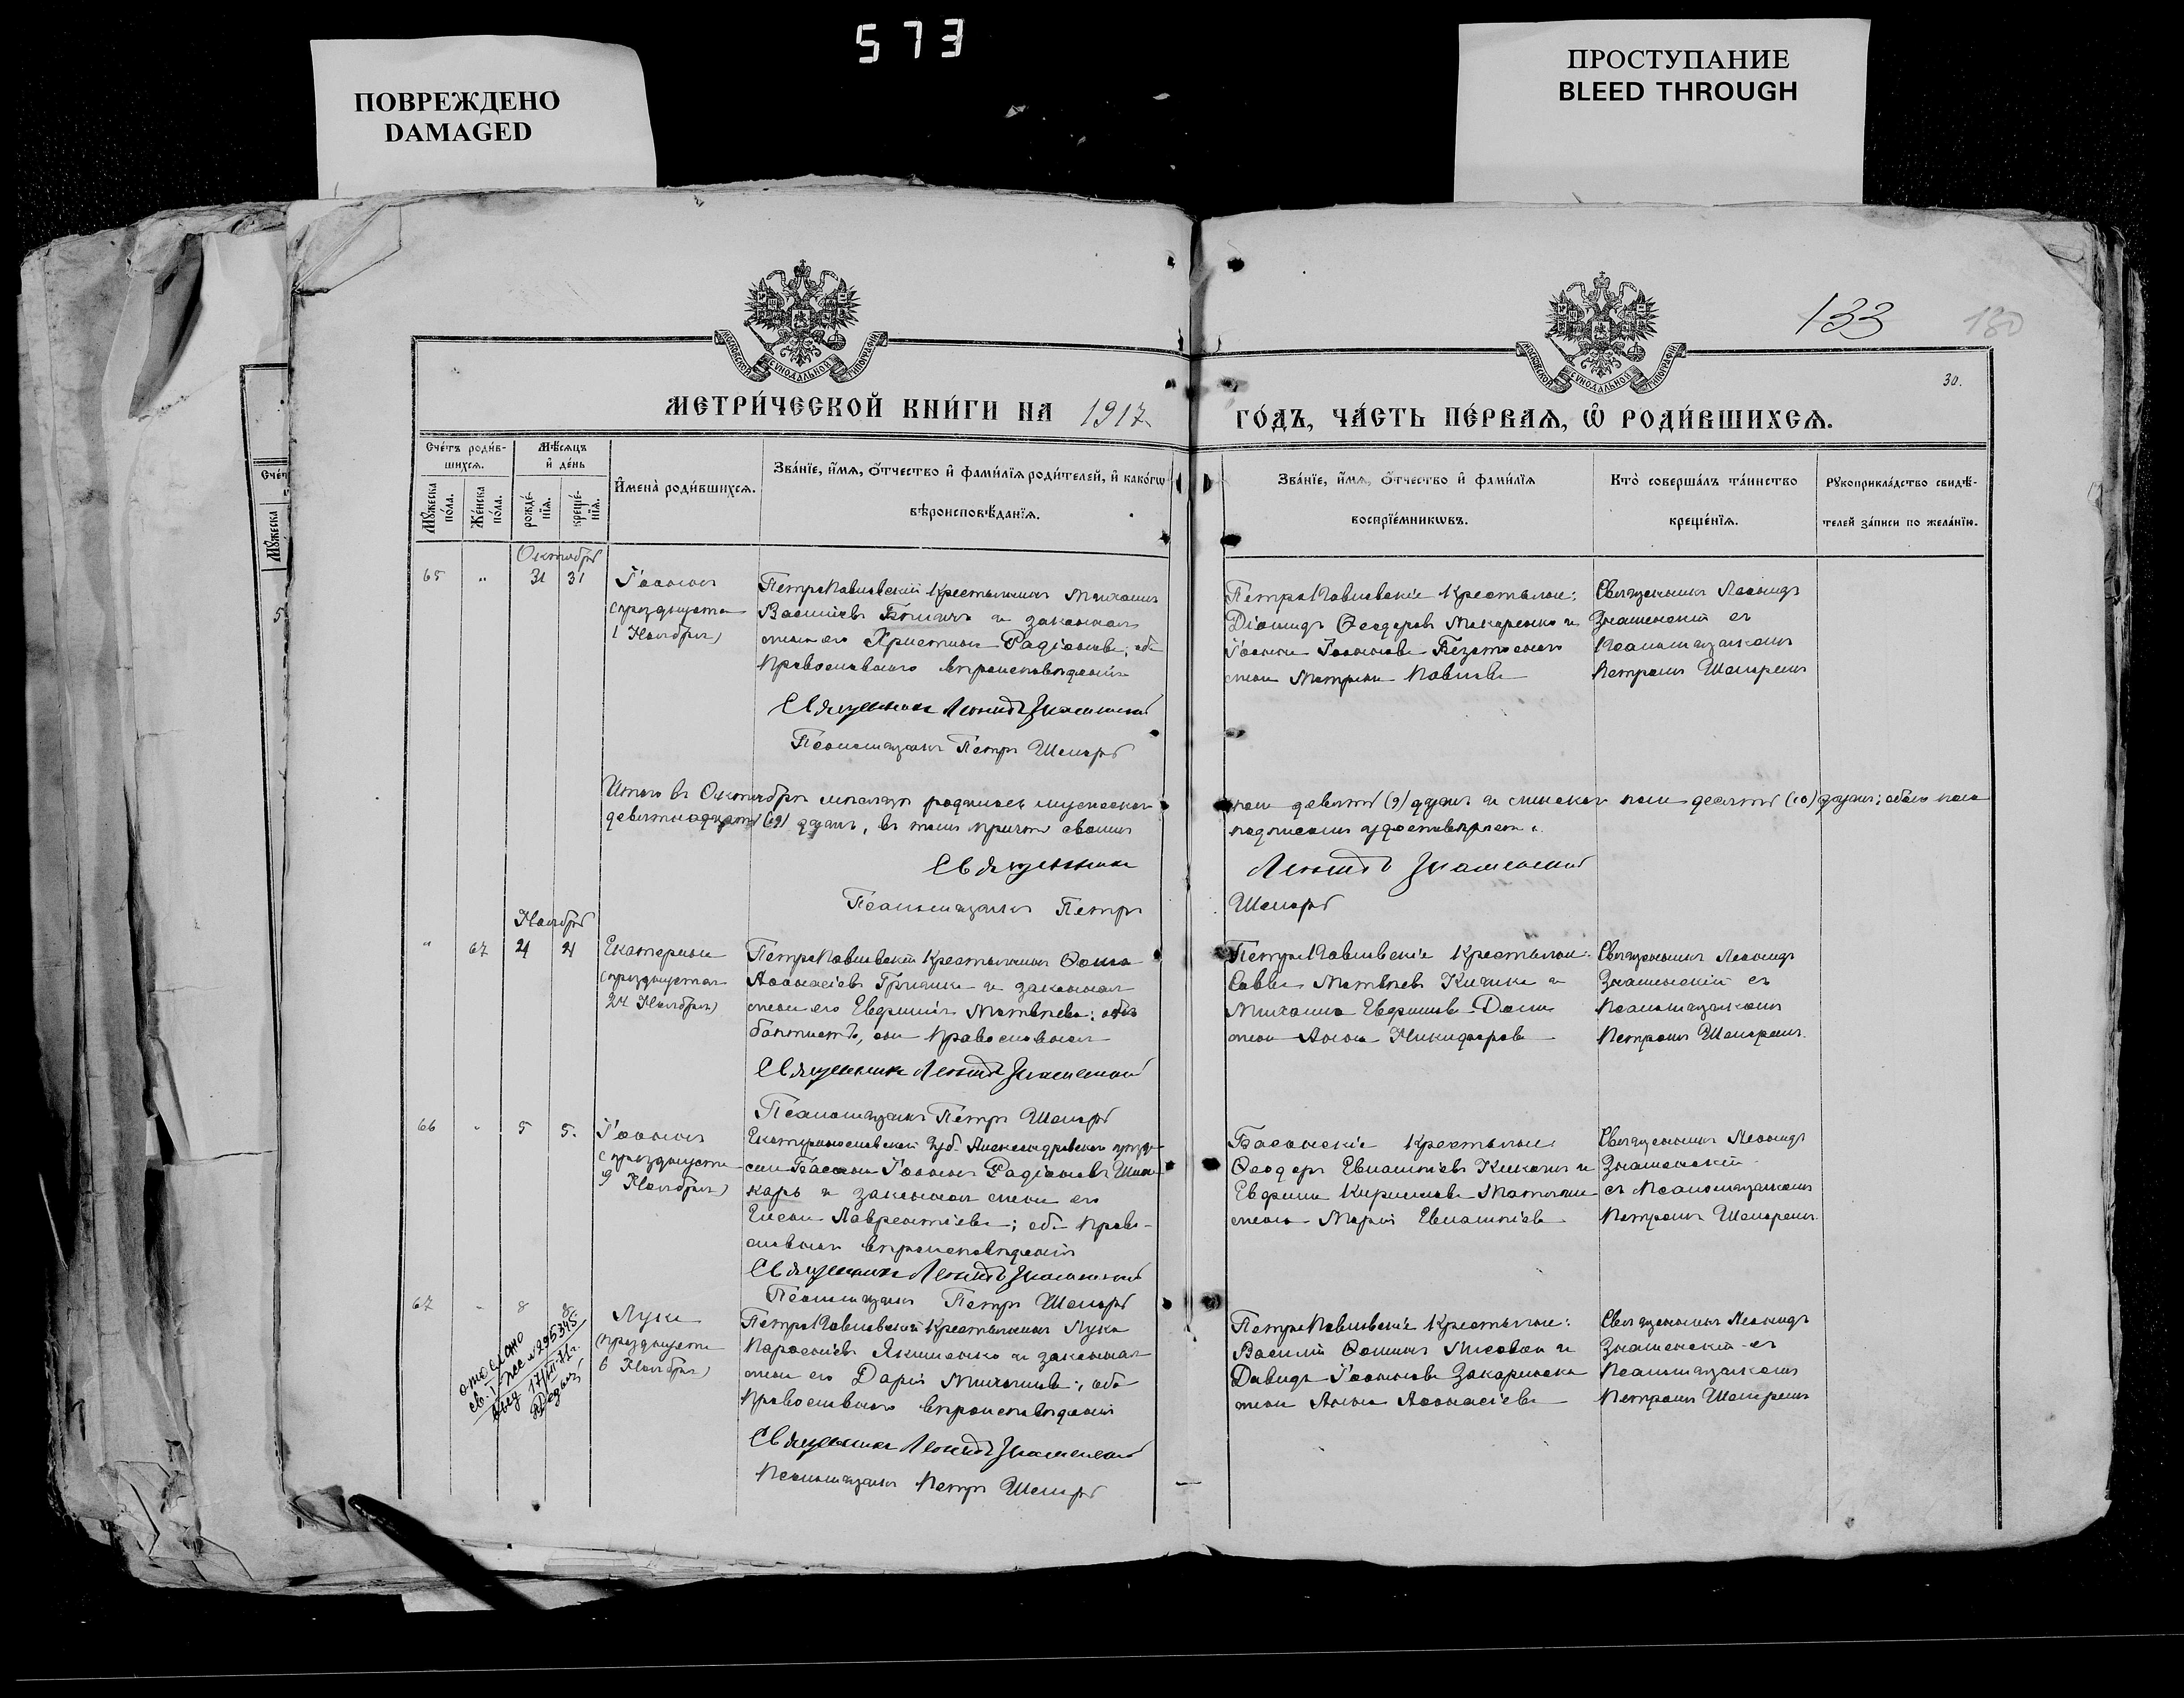 573
ПОВРЕЖДЕНО
DAMAGED
ПРОСТУПАНИЕ
BLEED THROUGH
133
180
30.
МОСКОВСКОЙ СѴНОДАЛЬНОЙ ТИПОГРАФІИ
МОСКОВСКОЙ СѴНОДАЛЬНОЙ ТИПОГРАФІИ
МЕТРИ́ЧЕСКОЙ КНИ́ГИ НА 1917
ГО́ДЪ, ЧА́СТЬ ПЕ́РВАѦ, Ѡ҆ РОДИ́ВШИХСѦ.
Сче́тъ роди́в-
шихсѧ.
Мꙋ́жеска по́ла.
Же́нска по́ла.
Мѣ́сѧцъ
и҆ де́нь
рожде́-
нїѧ.
креще́-
нїѧ.
И҆мена̀ роди́вшихсѧ.
Зва́нїе, и҆́мѧ, ѻ҆́тчество и҆ фами́лїѧ роди́телей, и҆ како́гѡ
вѣроисповѣ́данїѧ.
Зва́нїе, и҆́мѧ, ѻ҆́тчество и҆ фами́лїѧ
воспрїе́мникѡвъ.
Кто̀ соверша́лъ та́инство
креще́нїѧ.
Рꙋкоприкла́дство свидѣ́-
телей за́писи по жела́нїю.
Октябрь
65 " 31 31
Іоаннъ
(празднуется
1 Ноября)
Петропавловскій крестьянинъ Михаилъ
Васильевъ и законная
жена его Христина Радіонова; оба
православнаго вѣроисповѣданія
Священникъ Леонидъ Знаменскій
Псаломщикъ Петръ Шепарь
Петропавловскіе крестьяне:
Діомидъ Ѳеодоровъ Макаренко и
Іоанна Іоаннова
жена Матрона Павлова
Священникъ Леонидъ
Знаменскій съ
псаломщикомъ
Петромъ Шепаремъ
Итого въ Октябрѣ мѣсяцѣ родилось мужеска
пола девять (9) душъ и женска пола десять (10) душъ; обоего пола
девятнадцать (19) душъ, въ томъ причтъ своимъ
подписомъ удостовѣряетъ.
Священникъ Леонидъ Знаменскій
Псаломщикъ Петръ Шепарь
Ноябрь
" 67 4 4
Екатерина
(празднуется
24 Ноября)
Петропавловскій крестьянинъ Ѳома
Аѳанасіевъ и законная
жена его Евфимія Матвѣева;
баптистъ, она православная
Священникъ Леонидъ Знаменскій
Псаломщикъ Петръ Шепарь
Петропавловскіе крестьяне:
Савва Матвѣевъ и
Михаила Евфимова
жена Анна Никифорова
Священникъ Леонидъ
Знаменскій съ
псаломщикомъ
Петромъ Шепаремъ.
66 " 5 5.
Іоаннъ
(празднуется
9 Ноября)
Екатеринославской губ. Александровскаго уѣзда
села Басани Іоаннъ Радіоновъ
и законная жена его
Елена Лаврентіева; оба право-
славнаго вѣроисповѣданія
Священникъ Леонидъ Знаменскій
Псаломщикъ Петръ Шепарь
Басанскіе крестьяне
Ѳеодоръ Евлампіевъ и
Евфима Кириллова
жена Марія Евлампіева
Священникъ Леонидъ
Знаменскій
съ псаломщикомъ
Петромъ Шепаремъ.
67 " 8 8
Лука
(празднуется
6 Ноября)
Петропавловскій крестьянинъ Лука
и законная
жена его Дарія Михаилова; оба
православнаго вѣроисповѣданія
Священникъ Леонидъ Знаменскій
Псаломщикъ Петръ Шепарь
Петропавловскіе крестьяне:
Василій Ѳоминъ и
Давида Іоаннова
жена Анна Аѳанасіева
Священникъ Леонидъ
Знаменскій съ
псаломщикомъ
Петромъ Шепаремъ